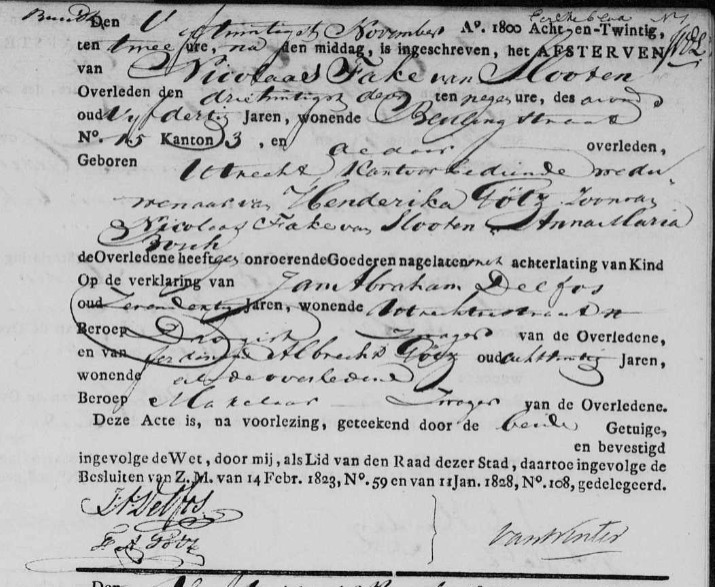 Den Vyfentwintigst November Aº. 1800 Acht-en-Twintig,
ten twee ure, na den middag, is ingeschreven, het AFSTERVEN
van Nicolaas Fake van Slooten
Overleden den drietwintigst dezer ten negen ure, des avonds
oud Veertig Jaren, wonende Beulingstraat
Nº. 15 Kanton 3, en aldaar overleden,
Geboren Utrecht Kantoorbediende wedu
wenaar van Henderika Götz Zoon van
Nicolaas Fake van Slooten & Anna Maria
Bosch
de Overledene heeft geen onroerende Goederen nagelaten met achterlating van Kind
Op de verklaring van Jan Abraham Delfos
oud Jaren, wonende Utrechtsestraat
Beroep Drogist Zwager van de Overledene,
en van Ferdinand Albrecht Götz oud achtentwintig Jaren,
wonende als de overledene
Beroep Makelaar Zwager van de Overledene.
Deze Acte is, na voorlezing, geteekend door de beide Getuige,
en bevestigd
ingevolge de Wet, door mij, als Lid van den Raad dezer Stad, daartoe ingevolge de
Besluiten van Z. M. van 14 Febr. 1823, Nº. 59 en van 11 Jan. 1828, Nº. 108, gedelegeerd.
J A Delfos
F A Götz
Van Winter
Den